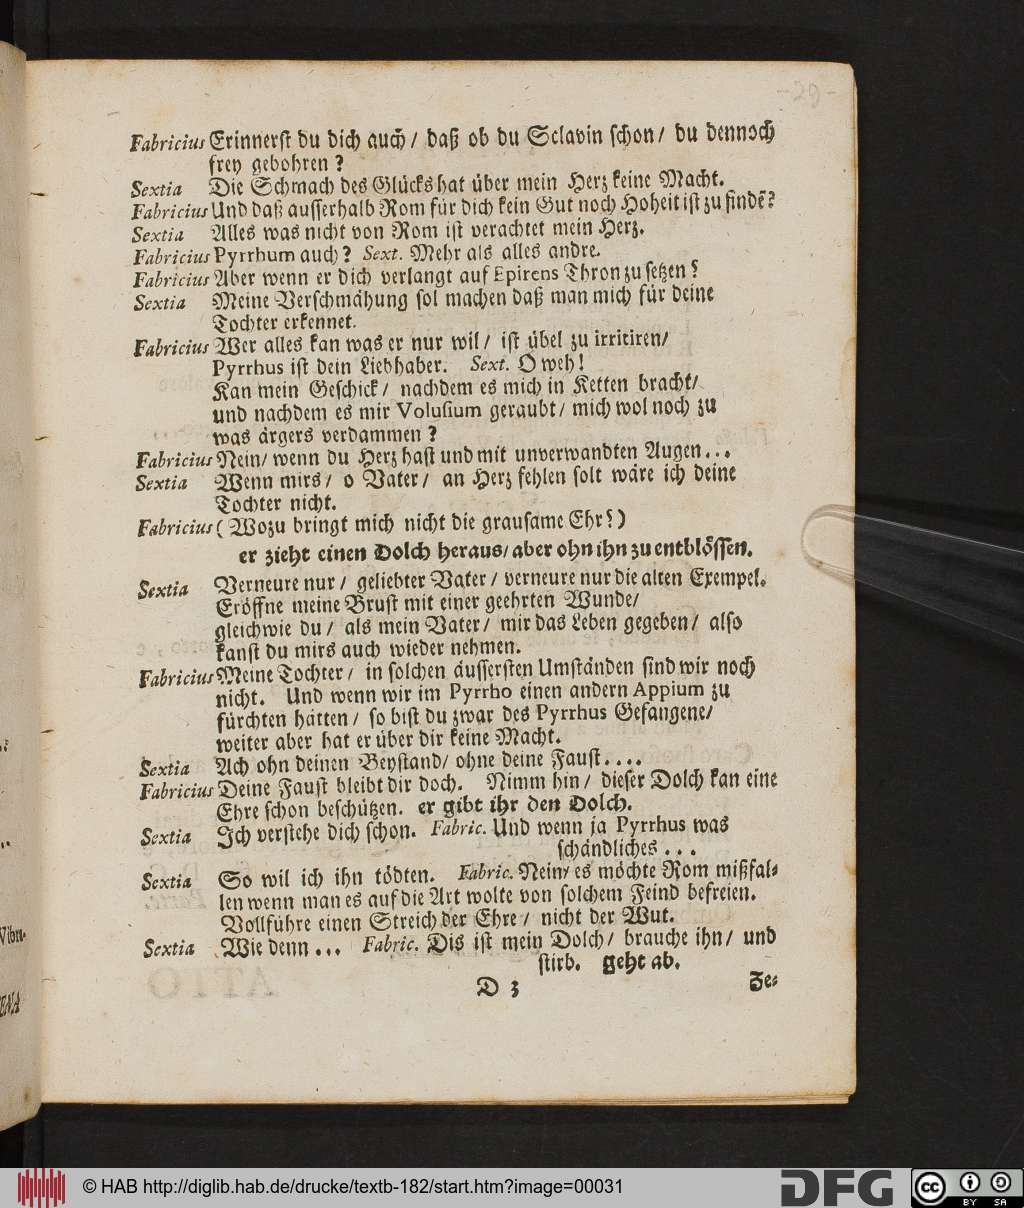 -29-
Fabricius Erinnerst du dich auch / daß ob du Sclavin schon / du dennoch
frey gebohren ?
Sextia Die Schmach des Glücks hat über mein Herz keine Macht.
Fabricius Und daß ausserhalb Rom für dich kein Gut noch Hoheit ist zu findẽ?
Sextia Alles was nicht von Rom ist verachtet mein Herz.
Fabricius Pyrrhum auch ? Sext. Mehr als alles andre.
Fabricius Aber wenn er dich verlangt auf Epirens Thron zu setzen ?
Sextia Meine Verschmähung sol machen daß man mich für deine
Tochter erkennet.
Fabricius Wer alles kan was er nur wil / ist übel zu irritiren /
Pyrrhus ist dein Liebhaber. Sext. O weh !
Kan mein Geschick / nachdem es mich in Ketten bracht /
und nachdem es mir Volusium geraubt / mich wol noch zu
was ärgers verdammen ?
Fabricius Nein / wenn du Herz hast und mit unverwandten Augen . . .
Sextia Wenn mirs / o Vater / an Herz fehlen solt wäre ich deine
Tochter nicht.
Fabricius ( Wozu bringt mich nicht die grausame Ehr ? )
er zieht einen Dolch heraus / aber ohn ihn zu entblössen.
Sextia Verneure nur / geliebter Vater / verneure nur die alten Exempel.
Eröffne meine Brust mit einer geehrten Wunde /
gleichwie du / als mein Vater / mir das Leben gegeben / also
kanst du mirs auch wieder nehmen.
Fabricius Meine Tochter / in solchen äussersten Umständen sind wir noch
nicht. Und wenn wir im Pyrrho einen andern Appium zu
fürchten hätten / so bist du zwar des Pyrrhus Gefangene /
weiter aber hat er über dir keine Macht.
Sextia Ach ohn deinen Beystand / ohne deine Faust . . . .
Fabricius Deine Faust bleibt dir doch. Nimm hin / dieser Dolch kan eine
Ehre schon beschützen. er gibt ihr den Dolch.
Sextia Ich verstehe dich schon. Fabric. Und wenn ja Pyrrhus was
schändliches . . .
Sextia So wil ich ihn tödten. Fabric. Nein / es möchte Rom mißfal-
len wenn man es auf die Art wolte von solchem Feind befreien.
Vollführe einen Streich der Ehre / nicht der Wut.
Sextia Wie denn . . . Fabric. Dis ist mein Dolch / brauche ihn / und
stirb. geht ab.
D 3 Ze-
© HAB http://diglib.hab.de/drucke/textb-182/start.htm?image=00031
DFG
cc BY SA